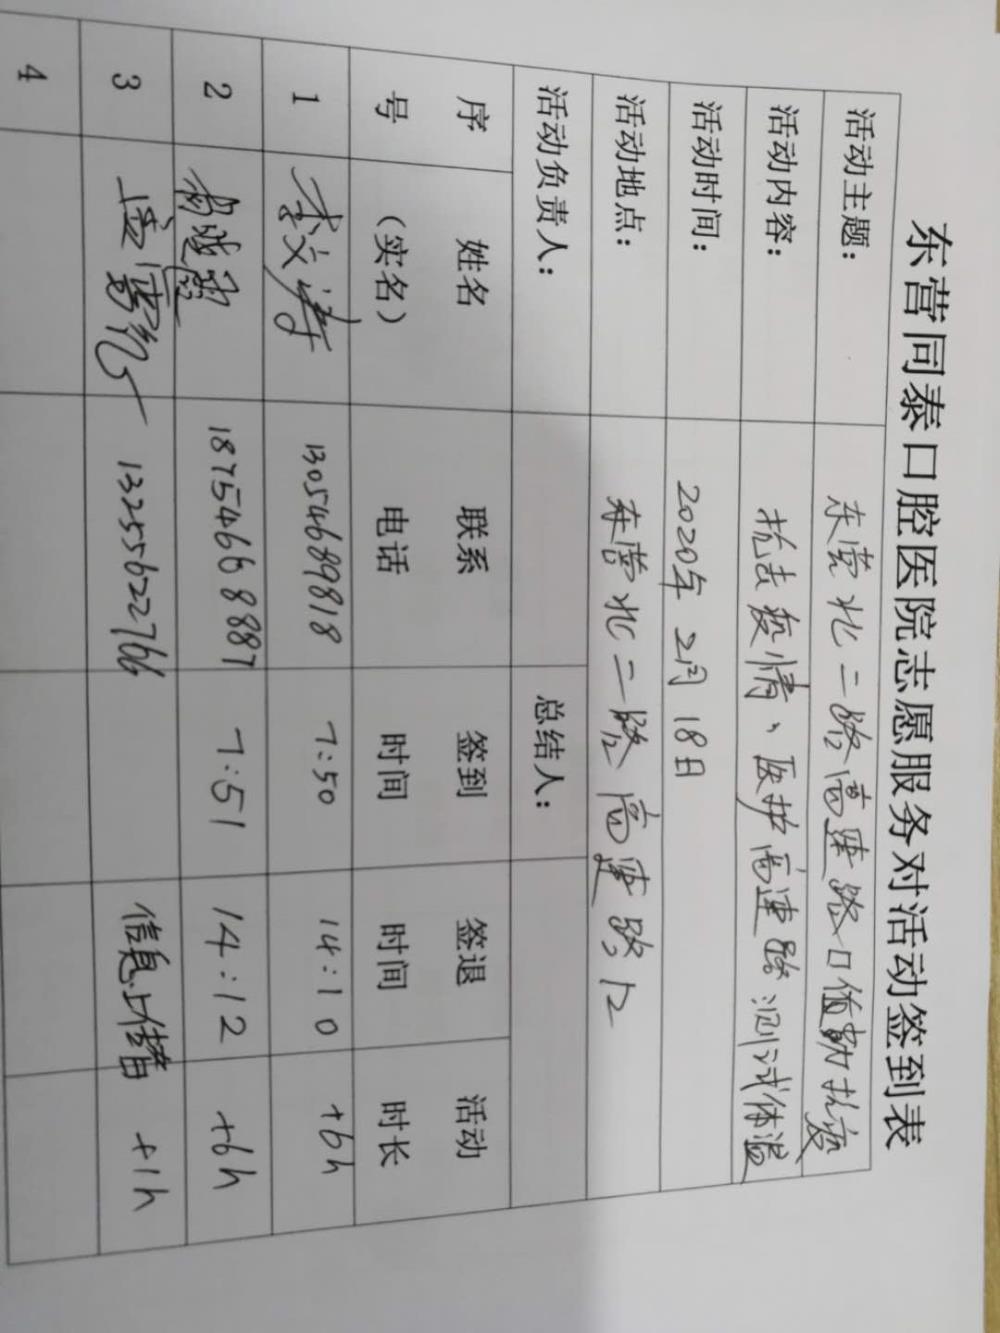 东营同泰口腔医院志愿服务对活动签到表
活动主题: 东营北二路高速路口值勤抗疫
活动内容: 抗击疫情、医护高速路测试体温
活动时间: 2020年 2月 18日
活动地点: 东营北二路高速路口
活动负责人: 总结人:
序号 姓名(实名) 联系电话 签到时间 签退时间 活动时长
1 李文涛 13054689818 7:50 14:10 +6h
2 18754668887 7:51 14:12 +6h
3 13255622766 信息上传 +1h
4